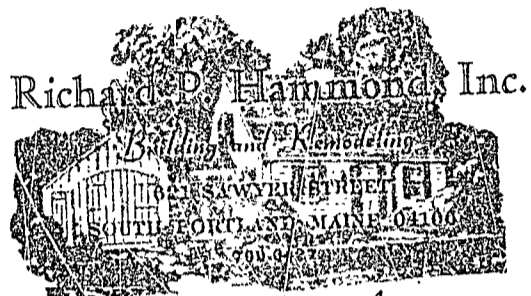 Richard P. Hammond, Inc.
Building and Remodeling
SAWYER STREET
SOUTH PORTLAND, MAINE 04106